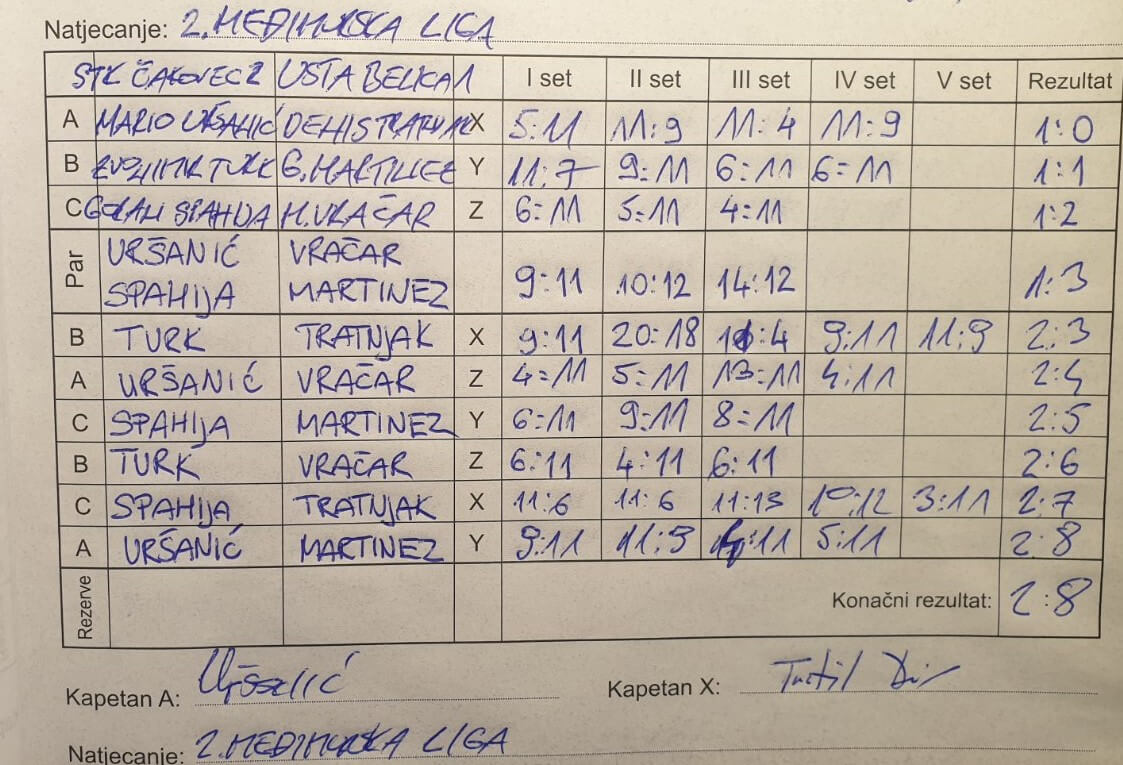 Natjecanje: 2. MEĐIMURSKA LIGA
STK ČAKOVEC 2 USTA BELICA 1 I set II set III set IV set V set Rezultat
A MARIO URŠANIĆ DENIS TRATNJAK X 5:11 11:9 11:4 11:9 1:0
B TURK G. MARTINEZ Y 11:7 9:11 6:11 6:11 1:1
C GORAN SPAHIJA M. VRAČAR Z 6:11 5:11 4:11 1:2
Par URŠANIĆ VRAČAR
SPAHIJA MARTINEZ 9:11 10:12 14:12 1:3
B TURK TRATNJAK X 9:11 20:18 11:4 9:11 11:9 2:3
A URŠANIĆ VRAČAR Z 4:11 5:11 13:11 4:11 2:4
C SPAHIJA MARTINEZ Y 6:11 9:11 8:11 2:5
B TURK VRAČAR Z 6:11 4:11 6:11 2:6
C SPAHIJA TRATNJAK X 11:6 11:6 11:13 10:12 3:11 2:7
A URŠANIĆ MARTINEZ Y 9:11 11:9 4:11 5:11 2:8
Rezerve Konačni rezultat: 2:8
Kapetan A: Uršanić Kapetan X:
Natjecanje: 2. MEĐIMURSKA LIGA